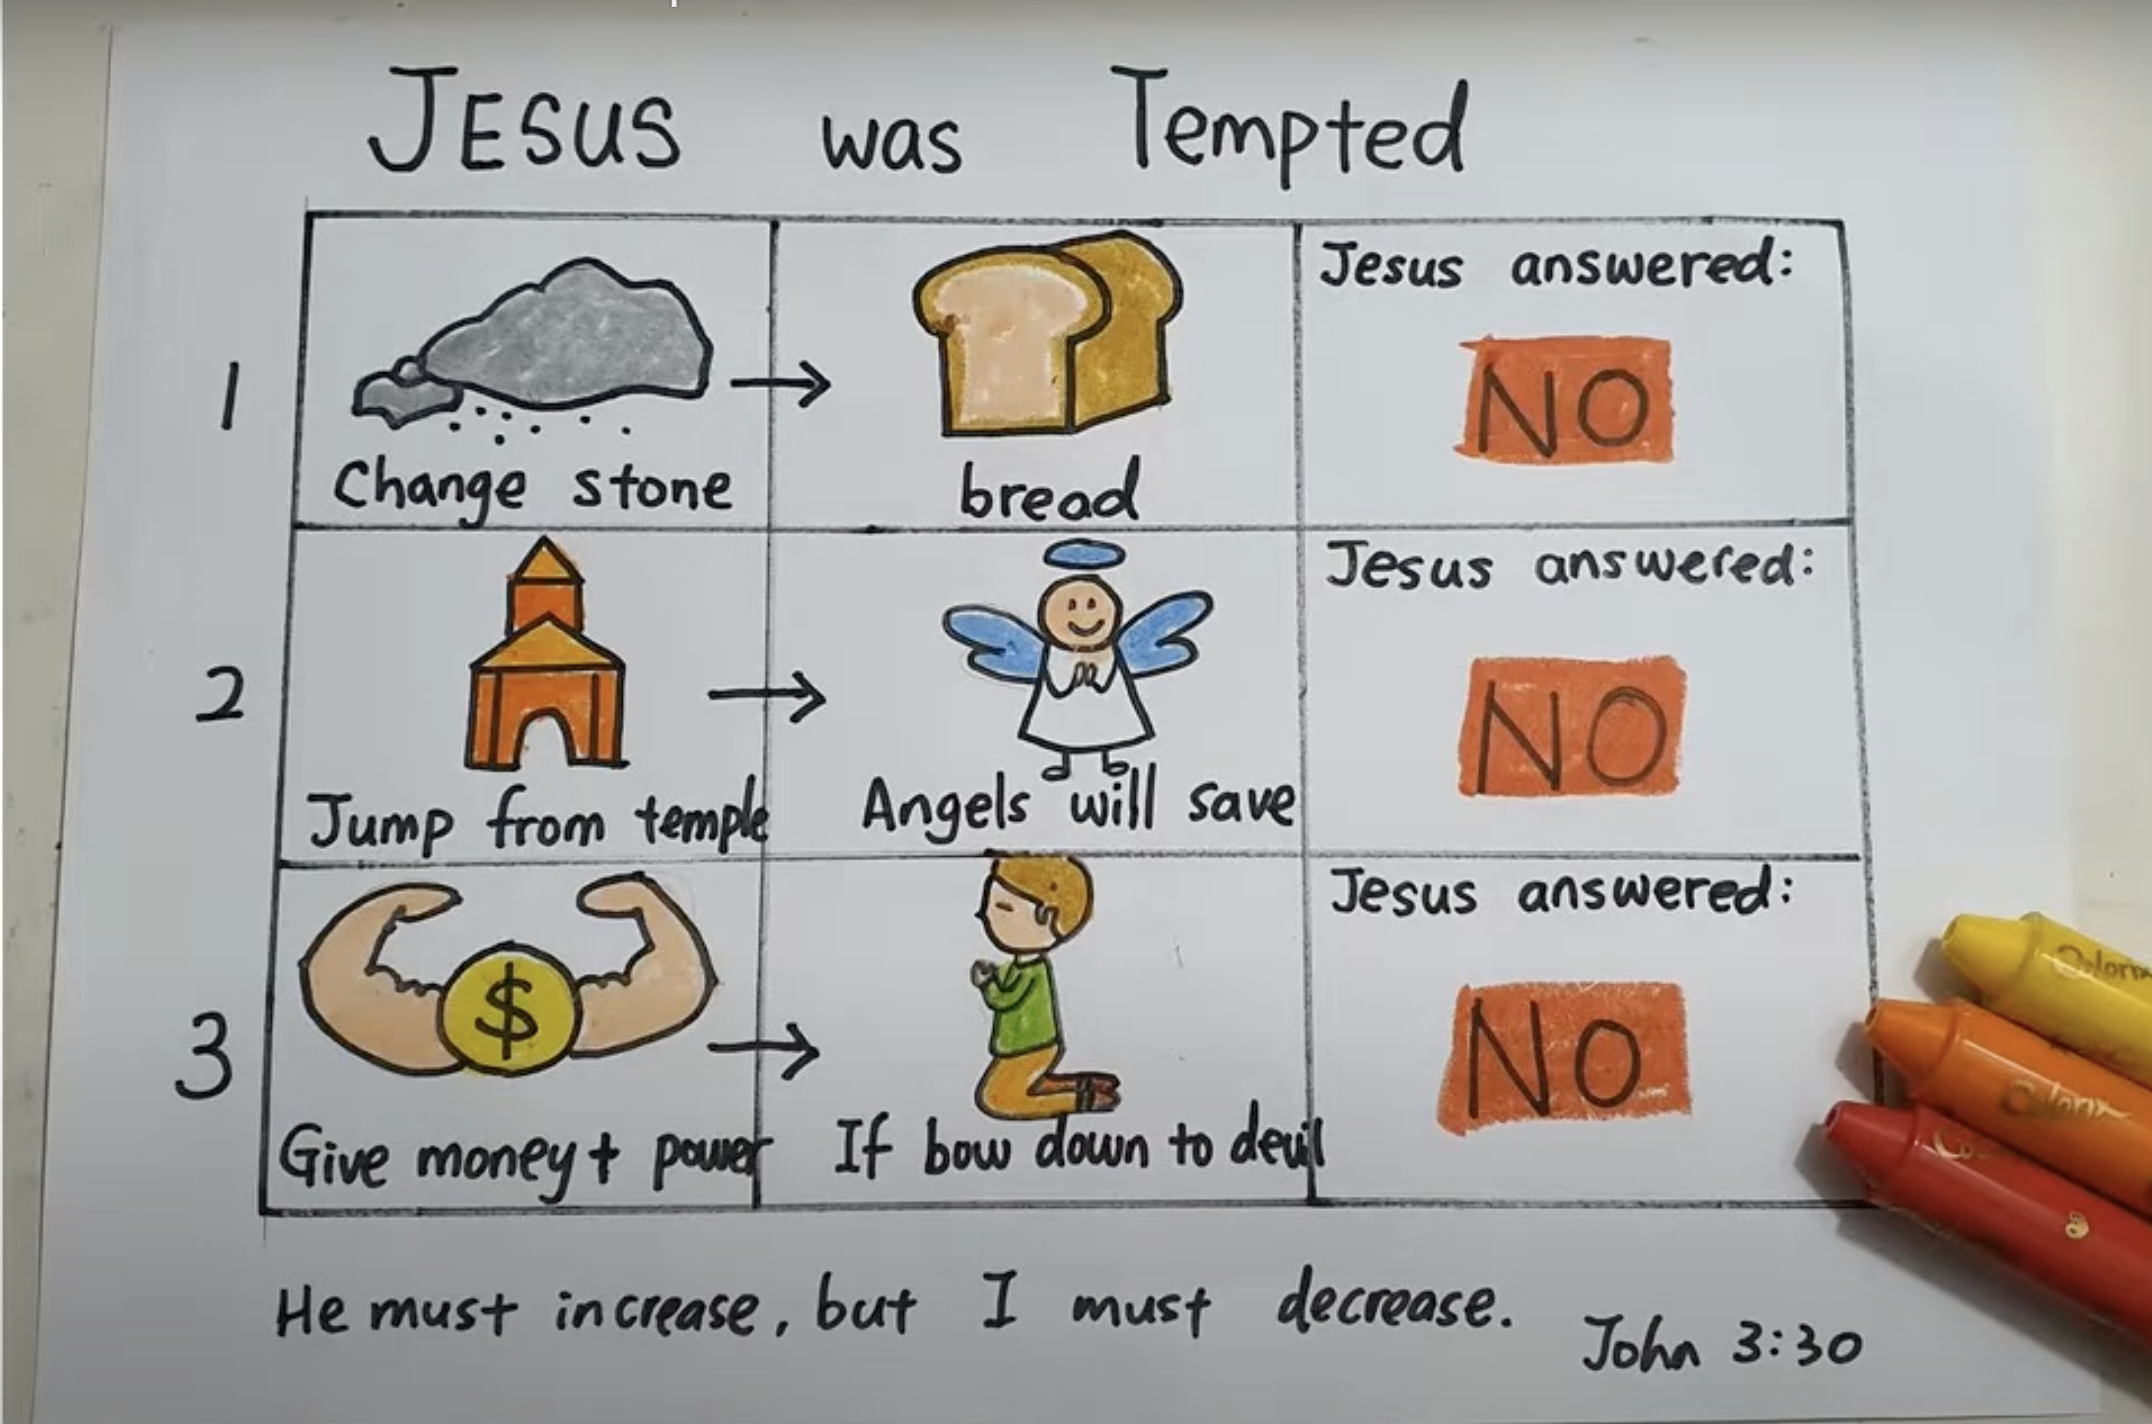 JESUS was Tempted
1
Change stone
bread
Jesus answered:
NO
2
Jump from temple
Angels will save
Jesus answered:
NO
3
$
Give money + power
If bow down to devil
Jesus answered:
NO
He must increase, but I must decrease.
John 3:30